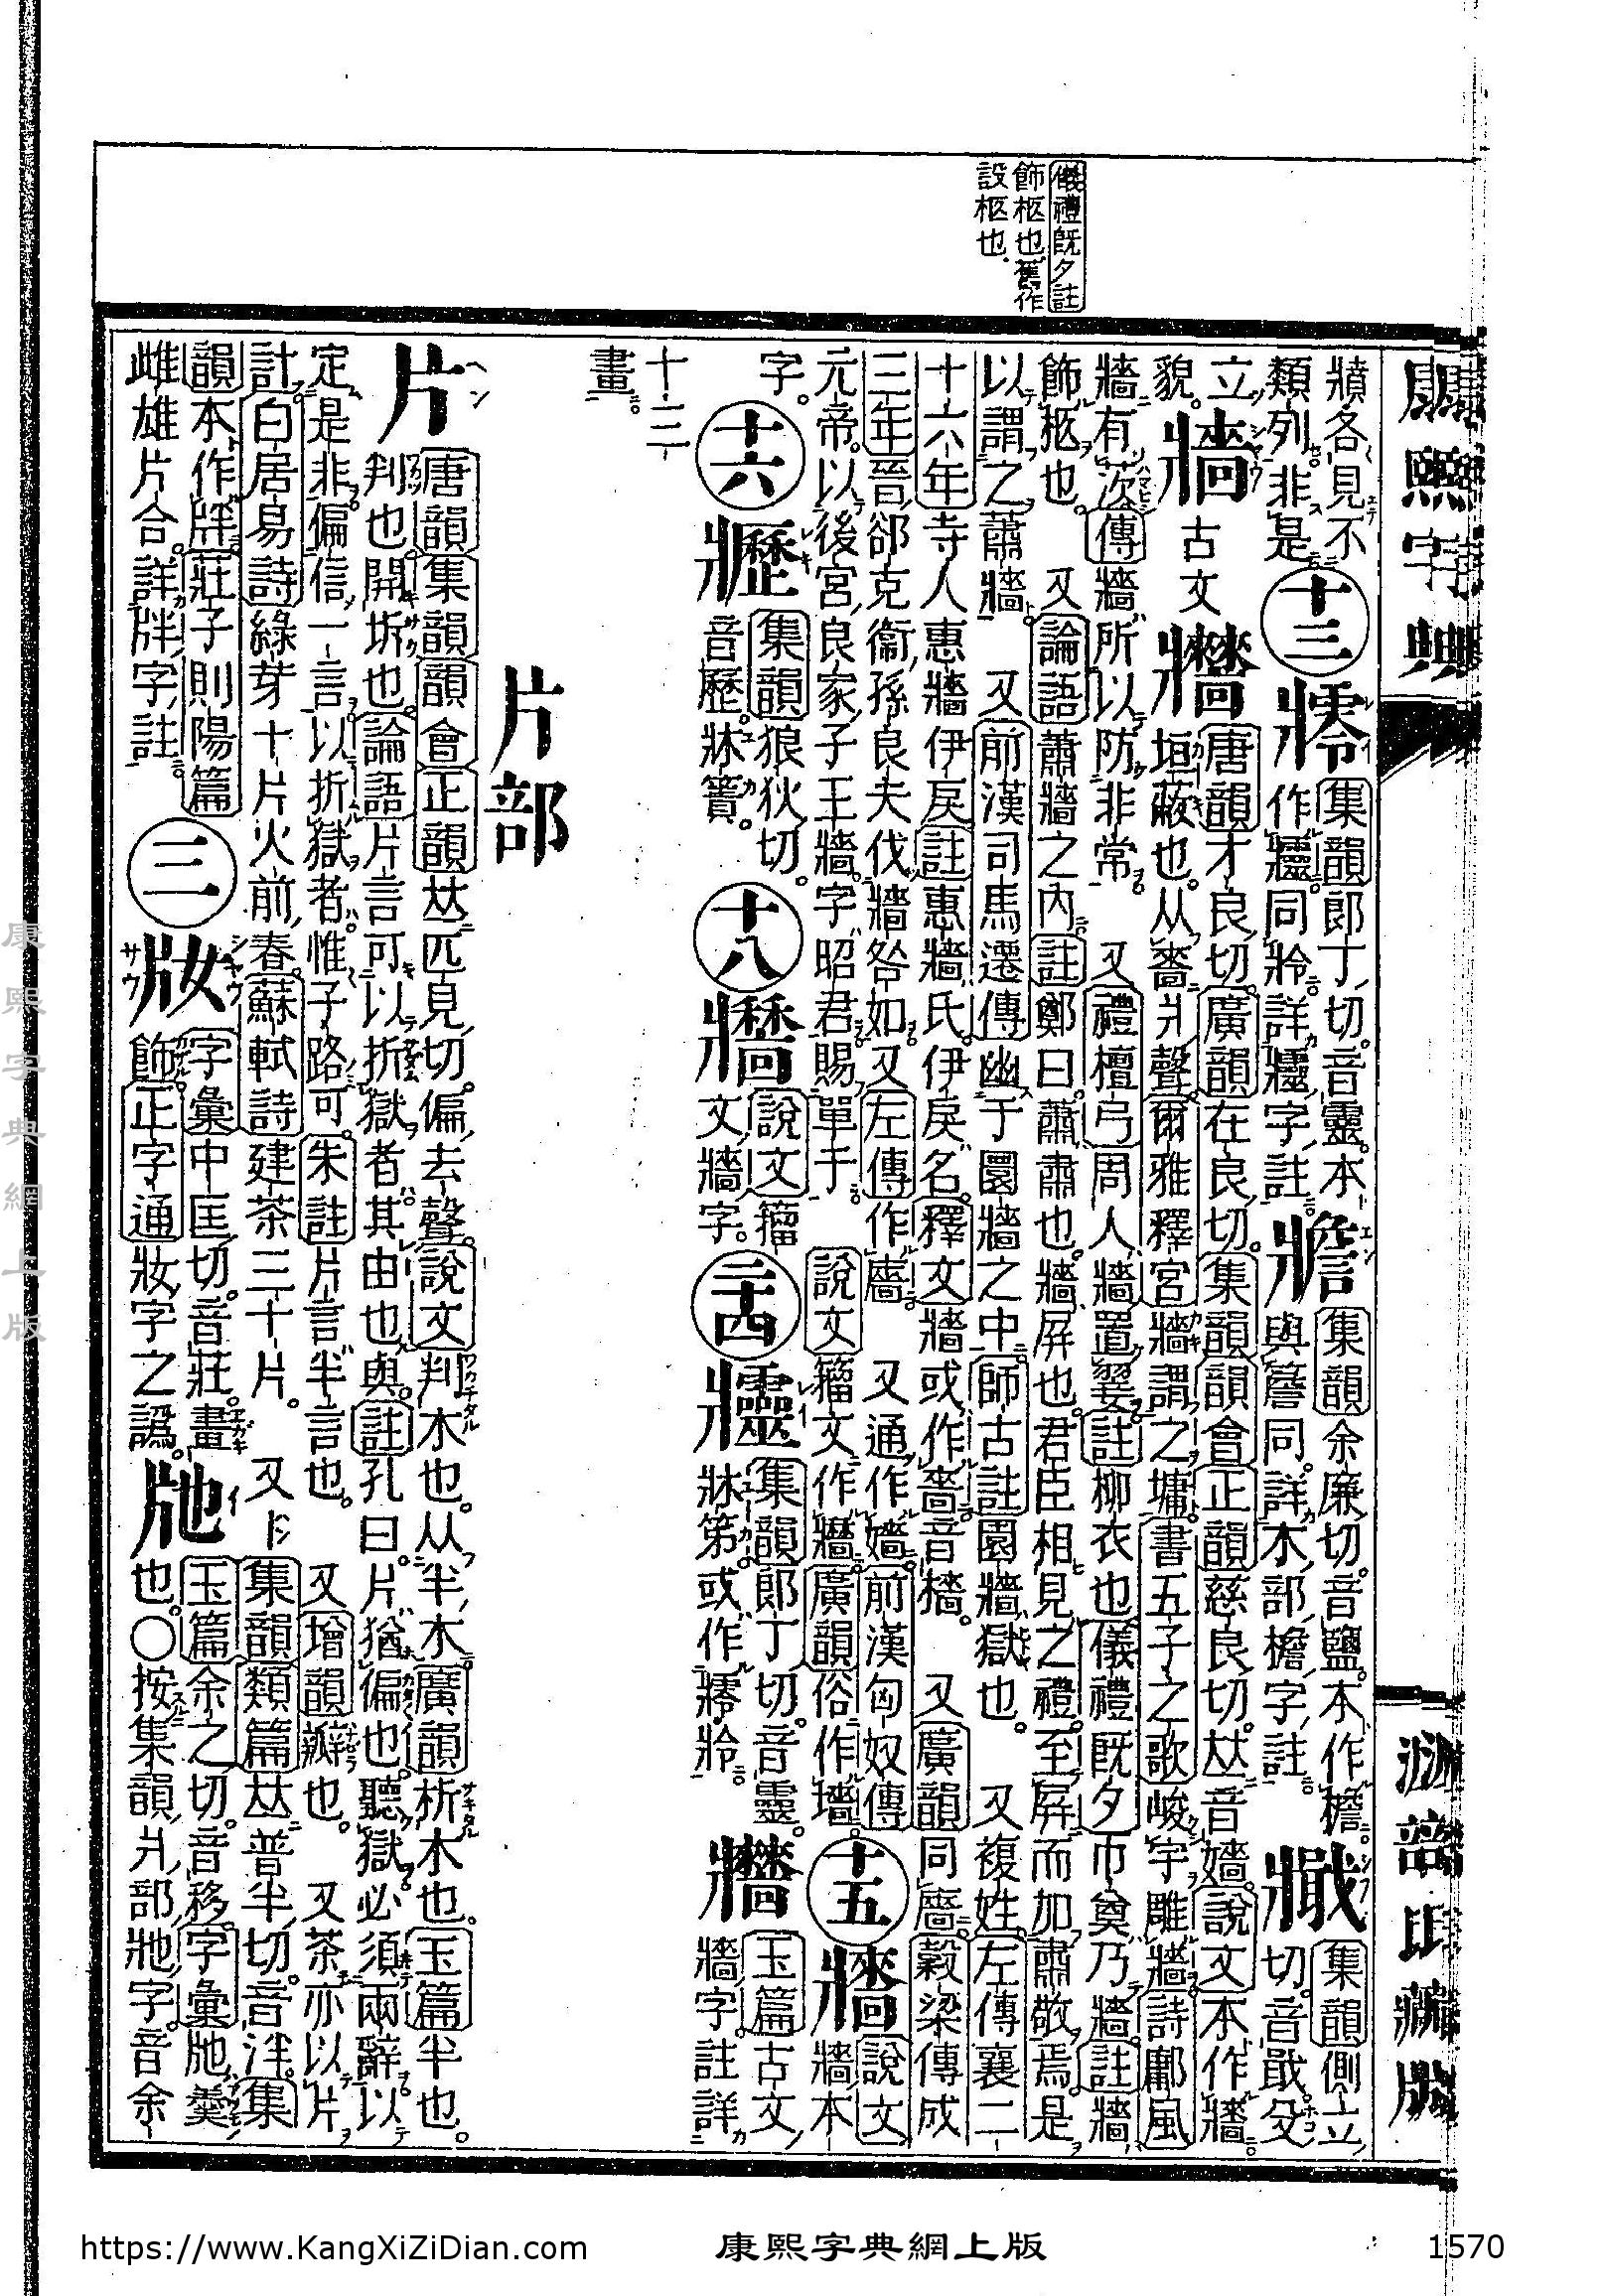 儀禮既夕註
飾柩也舊作
設柩也
康熙字典
牘各見不
類列非是
十三
𤖣
集韻郎丁切音靈本
作𤖤同𤖦詳𤖤字註
集韻余廉切音鹽本作檐
與簷同詳木部檐字註
集韻側立
切音戢殳
立
貌
牆
古文
唐韻才良切廣韻在良切集韻韻會正韻慈良切𠀤音嬙說文本作牆
垣蔽也从嗇爿聲爾雅釋宮牆謂之墉書五子之歌峻宇雕牆詩鄘風
牆有茨傳牆所以防非常 又禮檀弓周人牆置翣註柳衣也儀禮既夕巾奠乃牆註牆
飾柩也 又論語蕭牆之內註鄭曰蕭肅也牆屏也君臣相見之禮至屏而加肅敬焉是
以謂之蕭牆 又前漢司馬遷傳幽于圜牆之中師古註圜牆獄也 又複姓左傳襄二
十六年寺人惠牆伊戾註惠牆氏伊戾名釋文牆或作嗇音檣 又廣韻同廧穀梁傳成
三年晉郤克衞孫良夫伐牆咎如又左傳作廧 又通作嬙前漢匈奴傳
元帝以後宮良家子王牆字昭君賜單于 說文籀文作牆廣韻俗作墻
十五
牆
說文
牆本
字
十六
集韻狼狄切
音歷牀簀
十八
說文籀
文牆字
二十四
集韻郎丁切音靈
牀第或作
玉篇古文
牆字註詳
十三
畫
片部
片
唐韻集韻韻會正韻𠀤匹見切偏去聲說文判木也从半木廣韻析木也玉篇半也
判也開坼也論語片言可以折獄者其由也與註孔曰片猶偏也聽獄必須兩辭以
定是非偏信一言以折獄者惟子路可朱註片言半言也 又增韻瓣也 又茶亦以片
計白居易詩綠芽十片火前春蘇軾詩建茶三十片 又集韻類篇𠀤普半切音泮集
韻本作牉莊子則陽篇
雌雄片合詳牉字註
三
字彙中匡切音莊畫
飾正字通妝字之譌
玉篇余之切音移字彙㸠羹
也○按集韻爿部㸠字音余